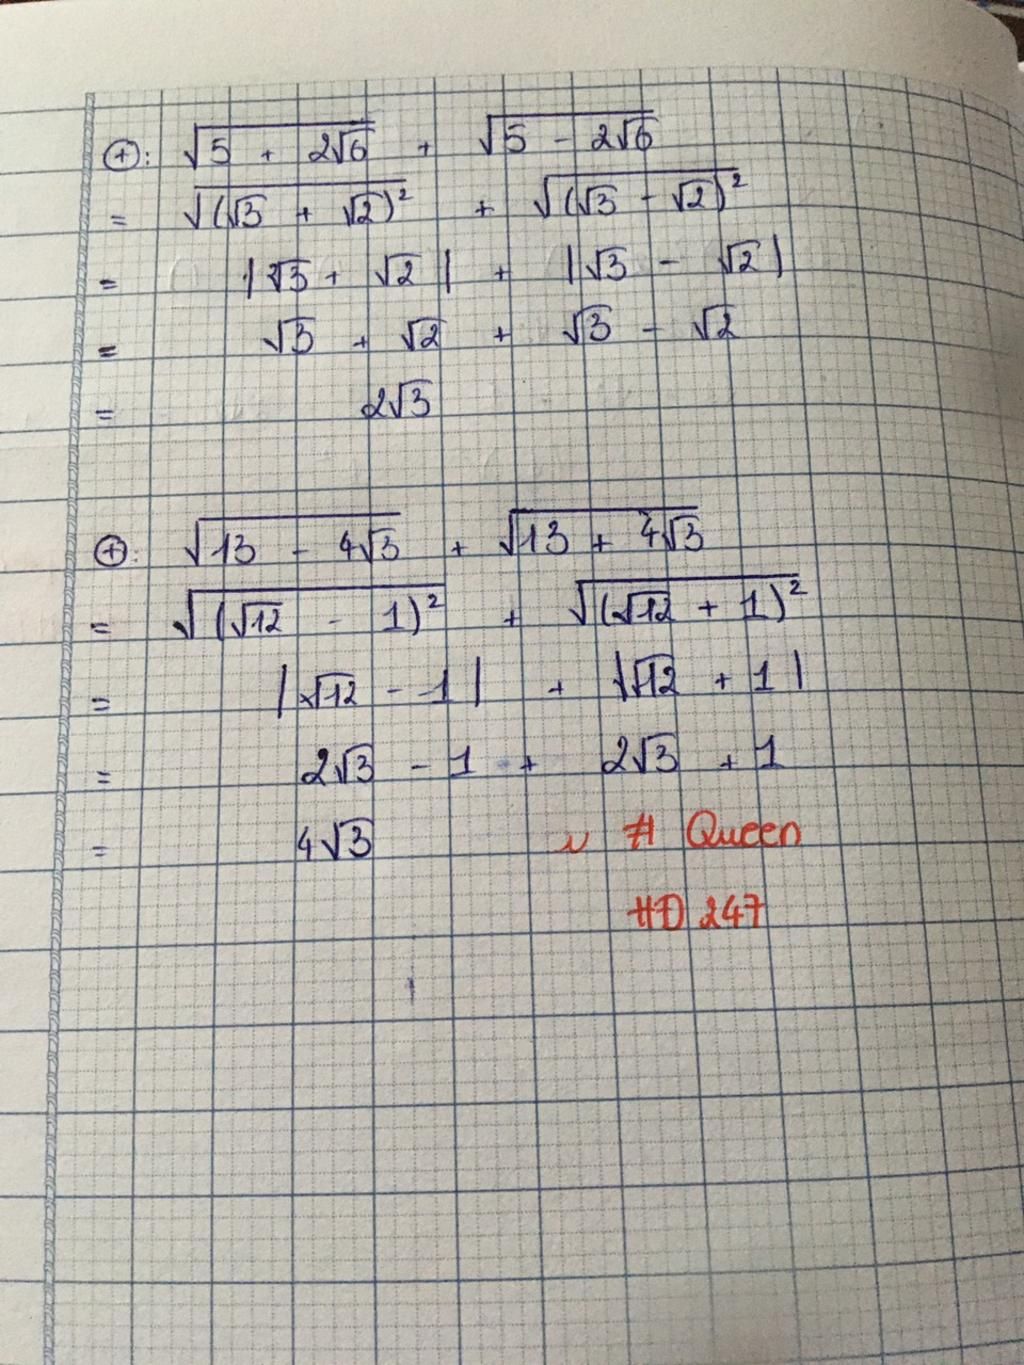 ⊕: √(5 + 2√6) + √(5 - 2√6)
= √((√3 + √2)²) + √((√3 - √2)²)
= |√3 + √2| + |√3 - √2|
= √3 + √2 + √3 - √2
= 2√3
⊕: √(13 - 4√3) + √(13 + 4√3)
= √((√12 - 1)²) + √((√12 + 1)²)
= |√12 - 1| + |√12 + 1|
= 2√3 - 1 + 2√3 + 1
= 4√3 # Queen
HD 247